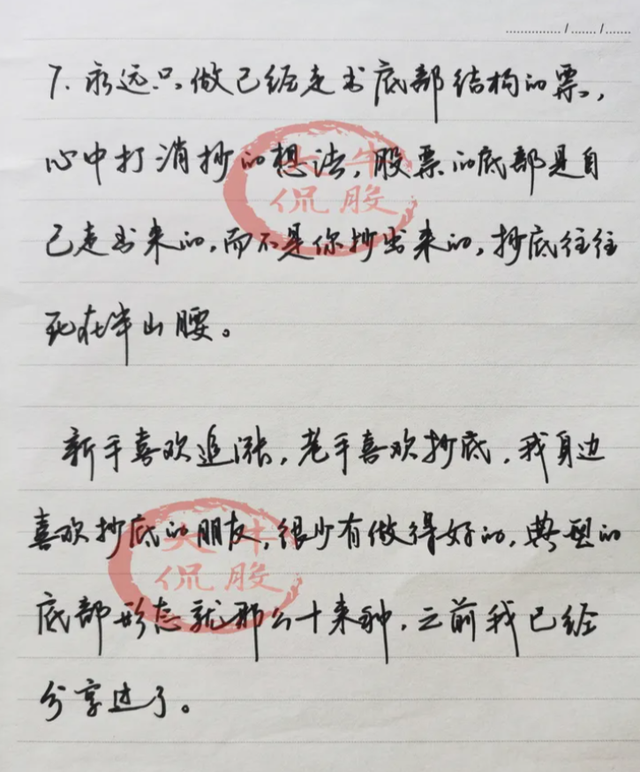 7. 永远只做已经走出底部结构的票，
心中打消抄的想法，股票的底部是自
己走出来的，而不是你抄出来的，抄底往往
死在半山腰。
新手喜欢追涨，老手喜欢抄底，我身边
喜欢抄底的朋友，很少有做得好的，典型的
底部形态就那么十来种，之前我已经
分享过了。
牛
侃股
牛
侃股